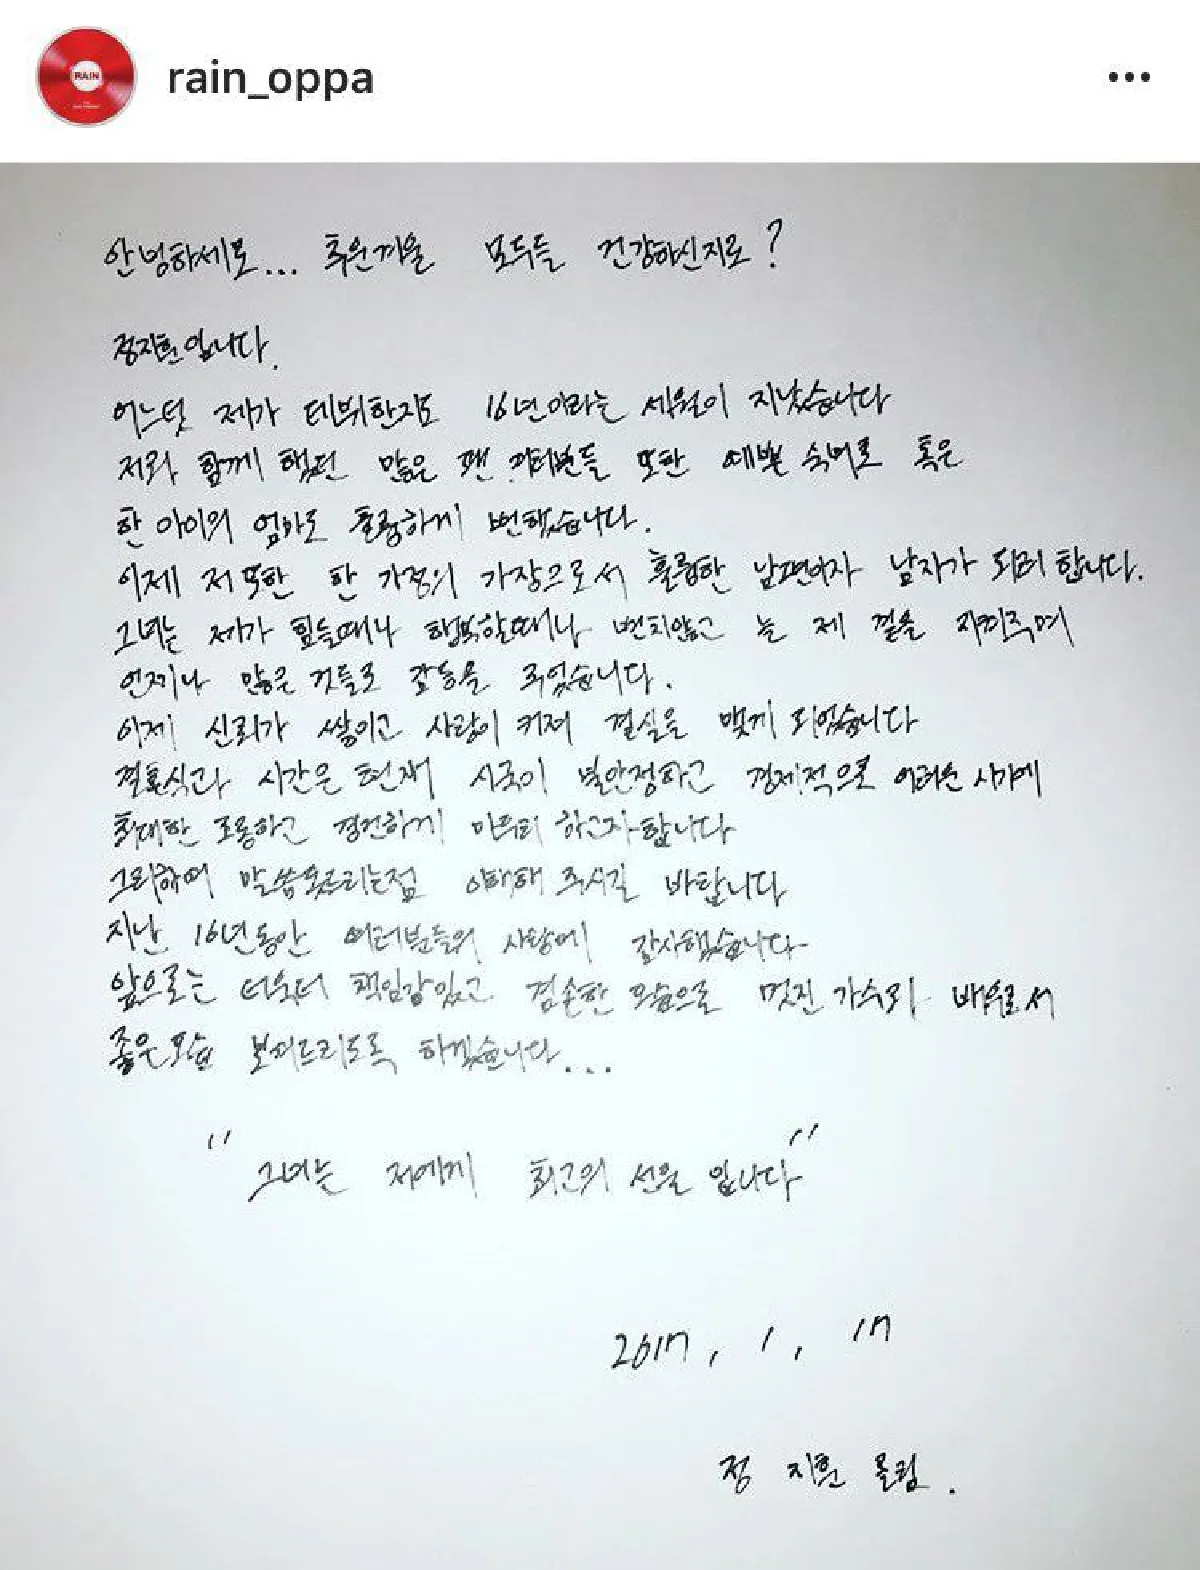 RAIN
rain_oppa
안녕하세요... 추운겨울 모두들 건강하신지요?
정지훈입니다.
어느덧 제가 데뷔한지도 16년이라는 세월이 지났습니다
저와 함께 했던 많은 팬 여러분들 또한 예쁜 숙녀로 혹은
한 아이의 엄마로 훌륭하게 변했습니다.
이제 저 또한 한 가정의 가장으로서 훌륭한 남편이자 남자가 되려 합니다.
그녀는 제가 힘들때나 행복할때나 변치않고 늘 제 곁을 지켜주며
언제나 많은 것들로 감동을 주었습니다.
이제 신뢰가 쌓이고 사랑이 커져 결실을 맺게 되었습니다
결혼식과 시간은 현재 시국이 불안정하고 경제적으로 어려운 시기에
최대한 조용하고 경건하게 마무리 하고자합니다
그리하여 말씀못드리는점 이해해 주시길 바랍니다
지난 16년동안 여러분들의 사랑에 감사했습니다
앞으로는 더욱더 책임감있고 겸손한 모습으로 멋진 가수와 배우로서
좋은모습 보여드리도록 하겠습니다...
"그녀는 저에게 최고의 선물 입니다"
2017, 1, 17
정 지훈 올림.